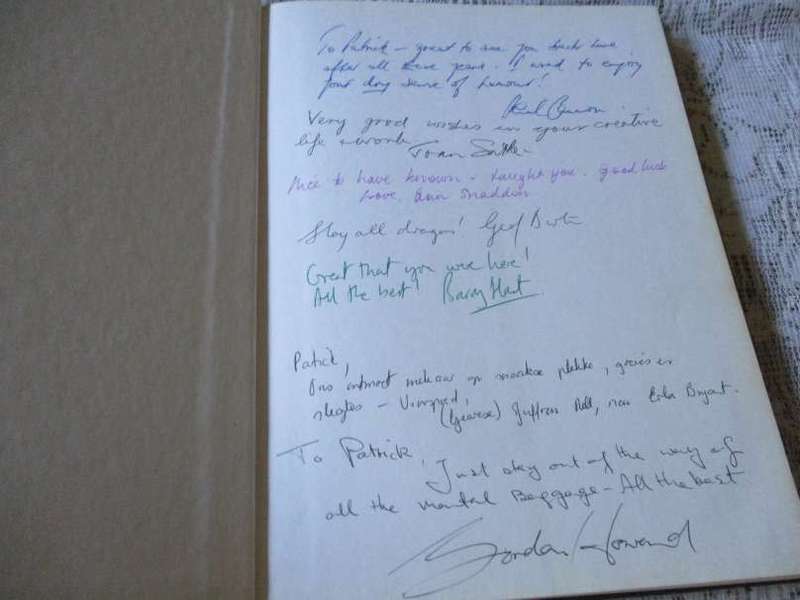 To Patrick – great to see you back here
after all these years. I used to enjoy
your dry sense of humour!
Very good wishes in your creative
life & work.
Nice to have known & taught you. Good luck
Love, Ann Snaddon
Slay all dragons!
Great that you were here!
All the best! Barry Hart
Patrick,
Ons ontmoet mekaar op snaakse plekke,
slegtes –
To Patrick,
Just stay out of the way of
all the mental Baggage – All the best
Gordon Howard